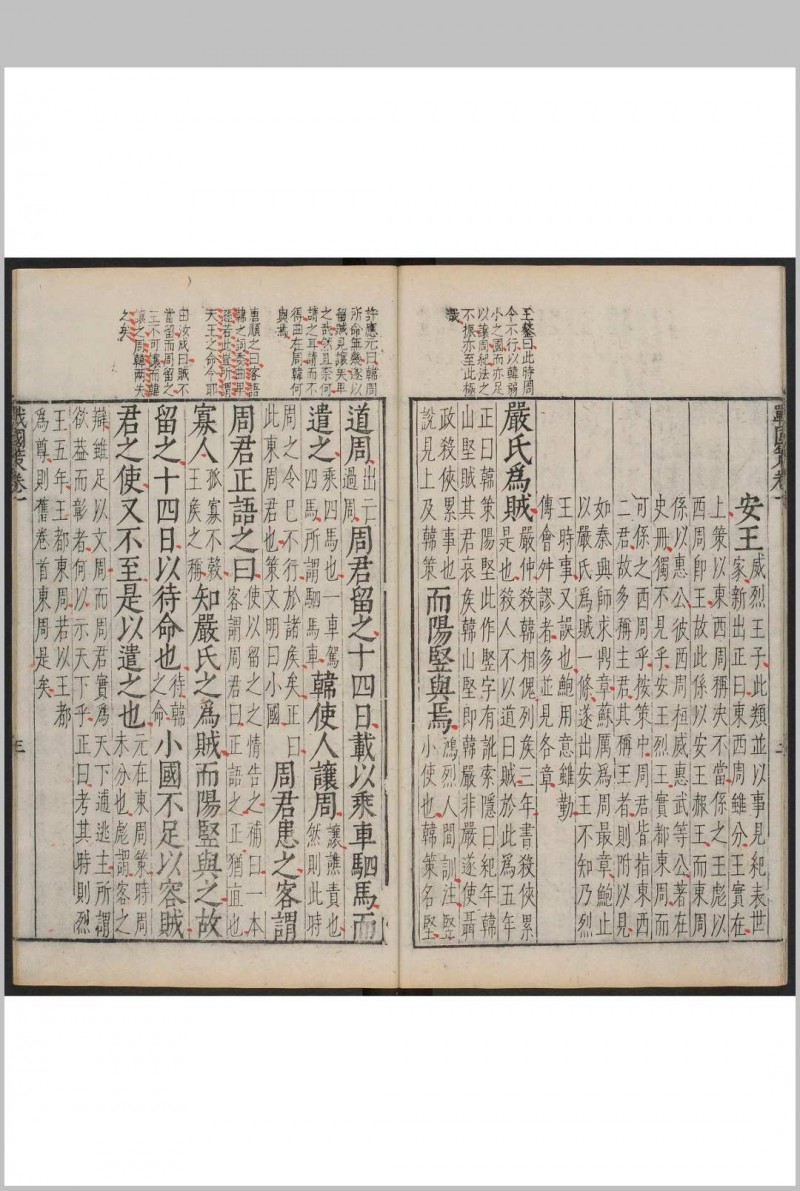 王鏊曰此時周
令不行以韓弱
小之國而亦足
以讓周紀法之
不振亦至此極
哉
安王
威烈王子此類並以事見紀表世
家新出正曰東西周雖分王實在
上策以東西周稱矣不當係之王彪以
西周即王故此係以安王赧王而東周
係以惠公彼西周桓威惠武等公著在
史冊獨不見乎安王烈王實都東周而
可係之西周乎按策中周君皆指東西
二君故多稱主君其稱王者則附以見
如秦興師求鼎章蘇厲爲周最章鮑止
以嚴氏爲賊一條遂出安王不知乃烈
王時事又誤也鮑用意雖勤
傳會舛謬者多並見各章
嚴氏爲賊
嚴仲殺韓相傀列矦三年書殺俠累
是也殺人不以道曰賊於此爲五年
正曰韓策陽堅此作竪字有訛索隱曰紀年韓
山堅賊其君哀矦韓山堅即韓嚴非嚴遂使聶
政殺俠累事也
說見上及韓策
而陽竪與焉
鴻烈人間訓注竪
小使也韓策名堅
戰國策卷一
許應元曰韓周
所命無幾遂以
留賊見讓矣卑
之哉然且奈何
請之耳請而不
得曲在周韓何
與焉
唐順之曰客語
韓之詞委曲卑
遜若此豈所謂
天王之命令耶
田汝成曰賊不
當留而周留之
王不可讓而韓
讓之周韓兩失
之矣
道周
出亡
過周
周君留之十四日載以乘車駟馬而
遣之
乘四馬也一車駕
四馬所謂駟馬車
韓使人讓周
讓譙責也
然則此時
周之令已不行於諸矦矣正曰
此東周君也策文明曰小國
周君患之客謂
周君正語之曰
使以留之之情告之補曰一本
客謂周君曰正語之正猶直也
寡人
孤寡不穀
王矦之稱
知嚴氏之爲賊而陽竪與之故
留之十四日以待命也
待韓
之命
小國不足以容賊
君之使又不至是以遣之也
元在東周策時周
未分也彪謂客之
辯雖足以文周而周君實爲天下逋逃主所謂
欲葢而彰者何以示天下乎正曰考其時則烈
王五年王都東周若以王都
爲尊則舊卷首東周是矣
戰國策卷一
三